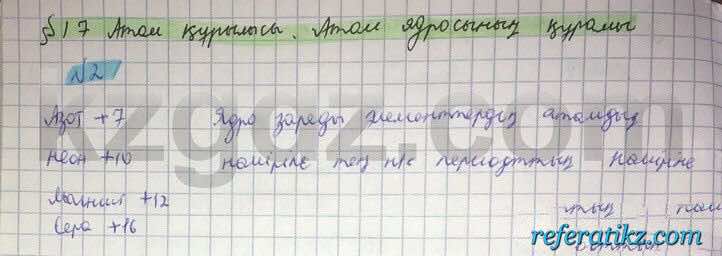 §17 Атом құрылысы. Атом ядросының құрамы
№2
Азот +7 Ядро заряды элементтердің атомдық
Неон +10 нөміріне тең п/с периодттың нөміріне
Магний +12 тың
Сера +16
kzgdz.com
referatikz.com